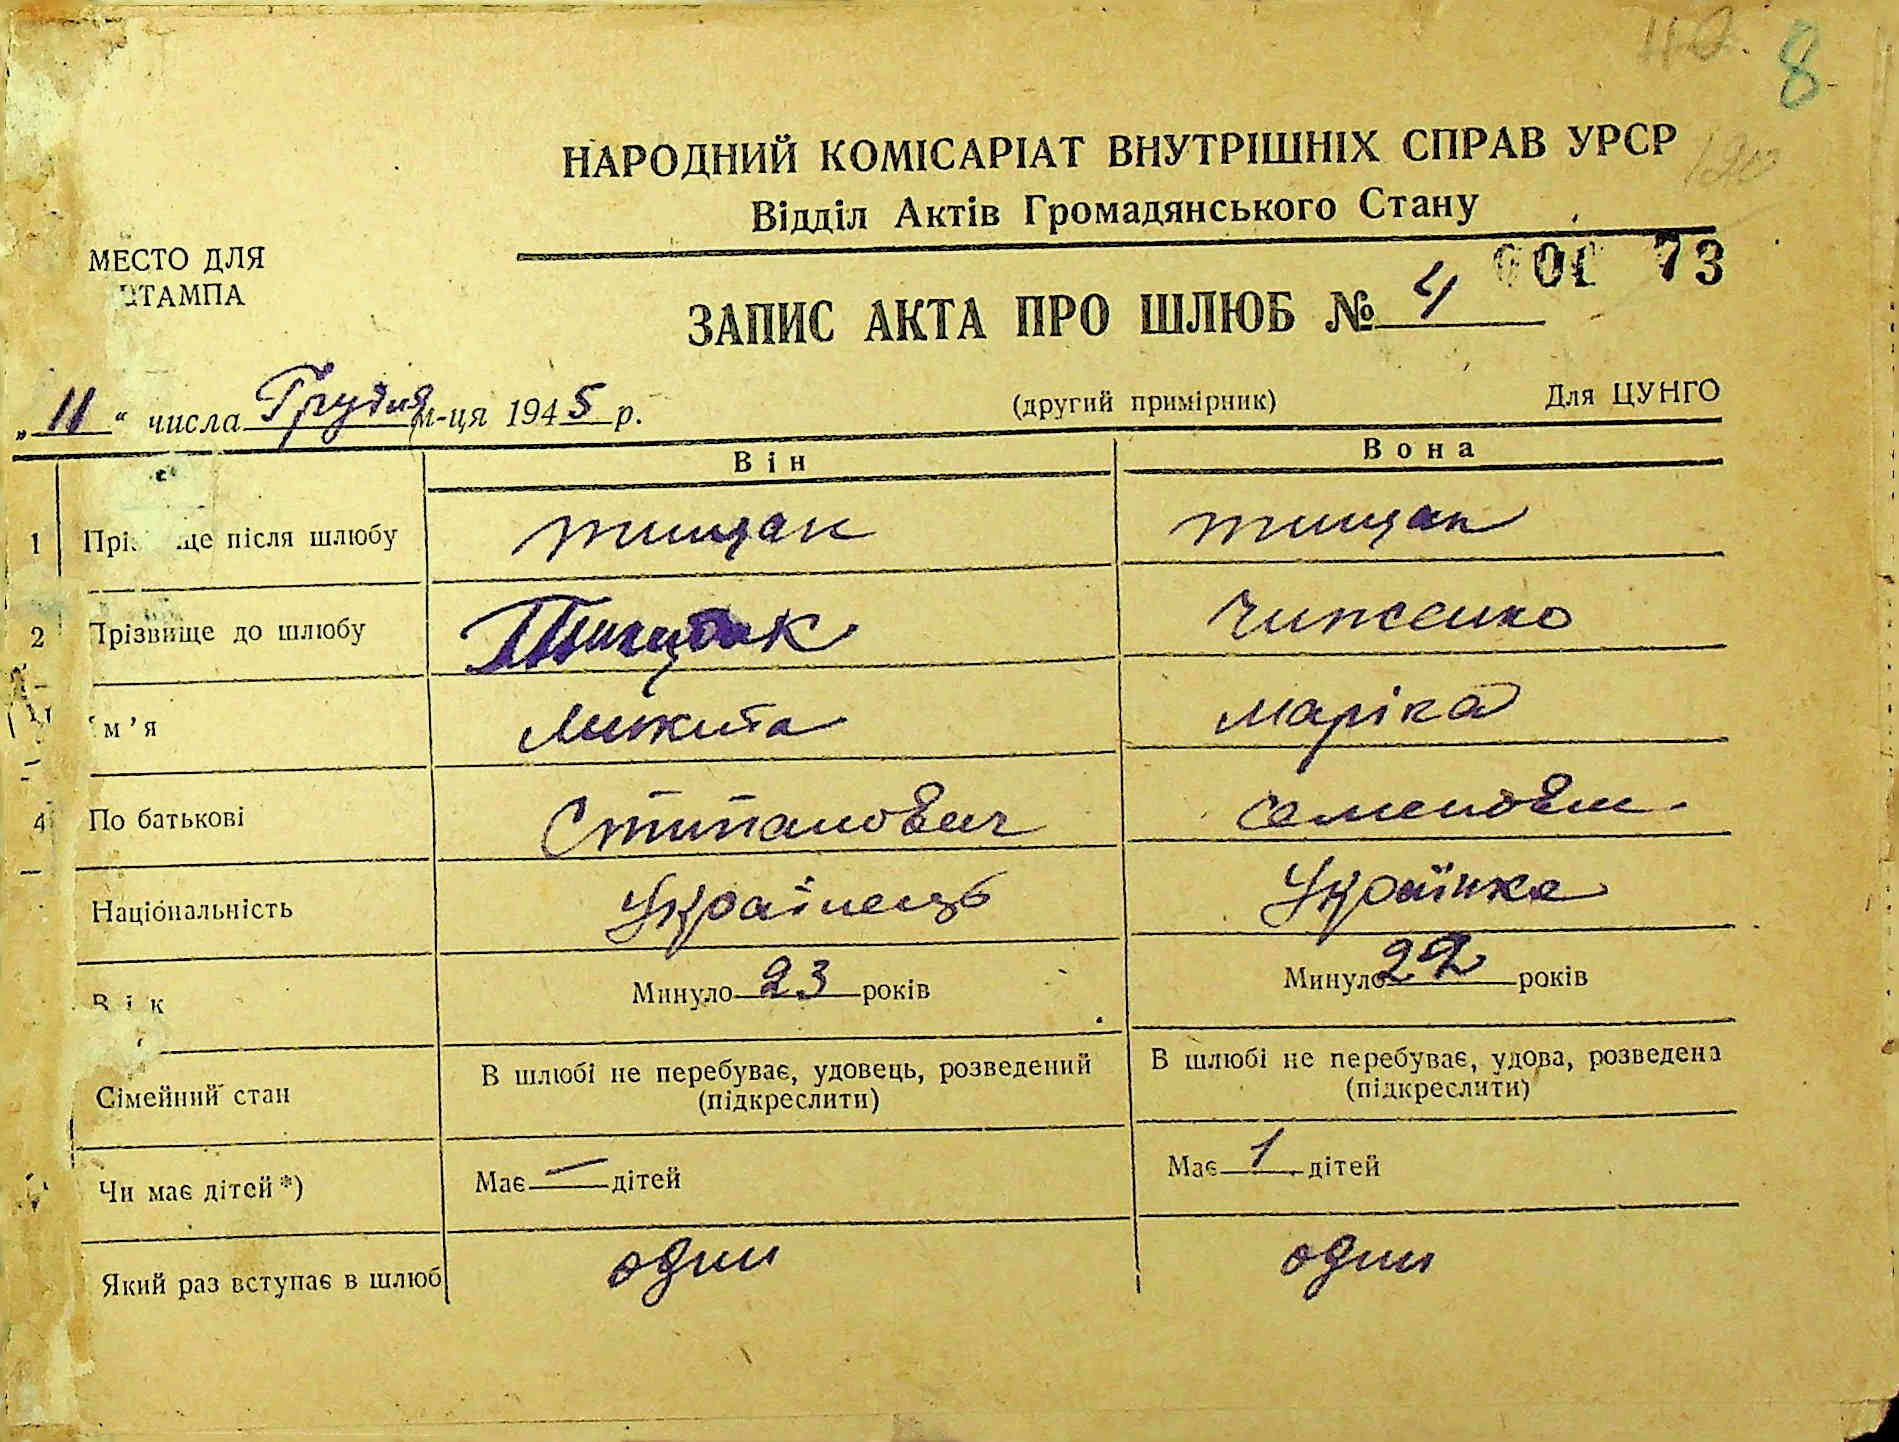 8
НАРОДНИЙ КОМІСАРІАТ ВНУТРІШНІХ СПРАВ УРСР
Відділ Актів Громадянського Стану
МЕСТО ДЛЯ
ШТАМПА
73
ЗАПИС АКТА ПРО ШЛЮБ № 4
„11“ числа Грудня м-ця 1945 р. (другий примірник) Для ЦУНГО
Він Вона
1 Прізвище після шлюбу тищак тищак
2 Прізвище до шлюбу Тищак Чиженко
Ім’я Микита маріка
4 По батькові Стипанович семеновн
Національність Українець Українка
Вік Минуло 23 років Минуло 22 років
Сімейний стан В шлюбі не перебуває, удовець, розведений (підкреслити) В шлюбі не перебуває, удова, розведена (підкреслити)
Чи має дітей*) Має — дітей Має 1 дітей
Який раз вступає в шлюб один один